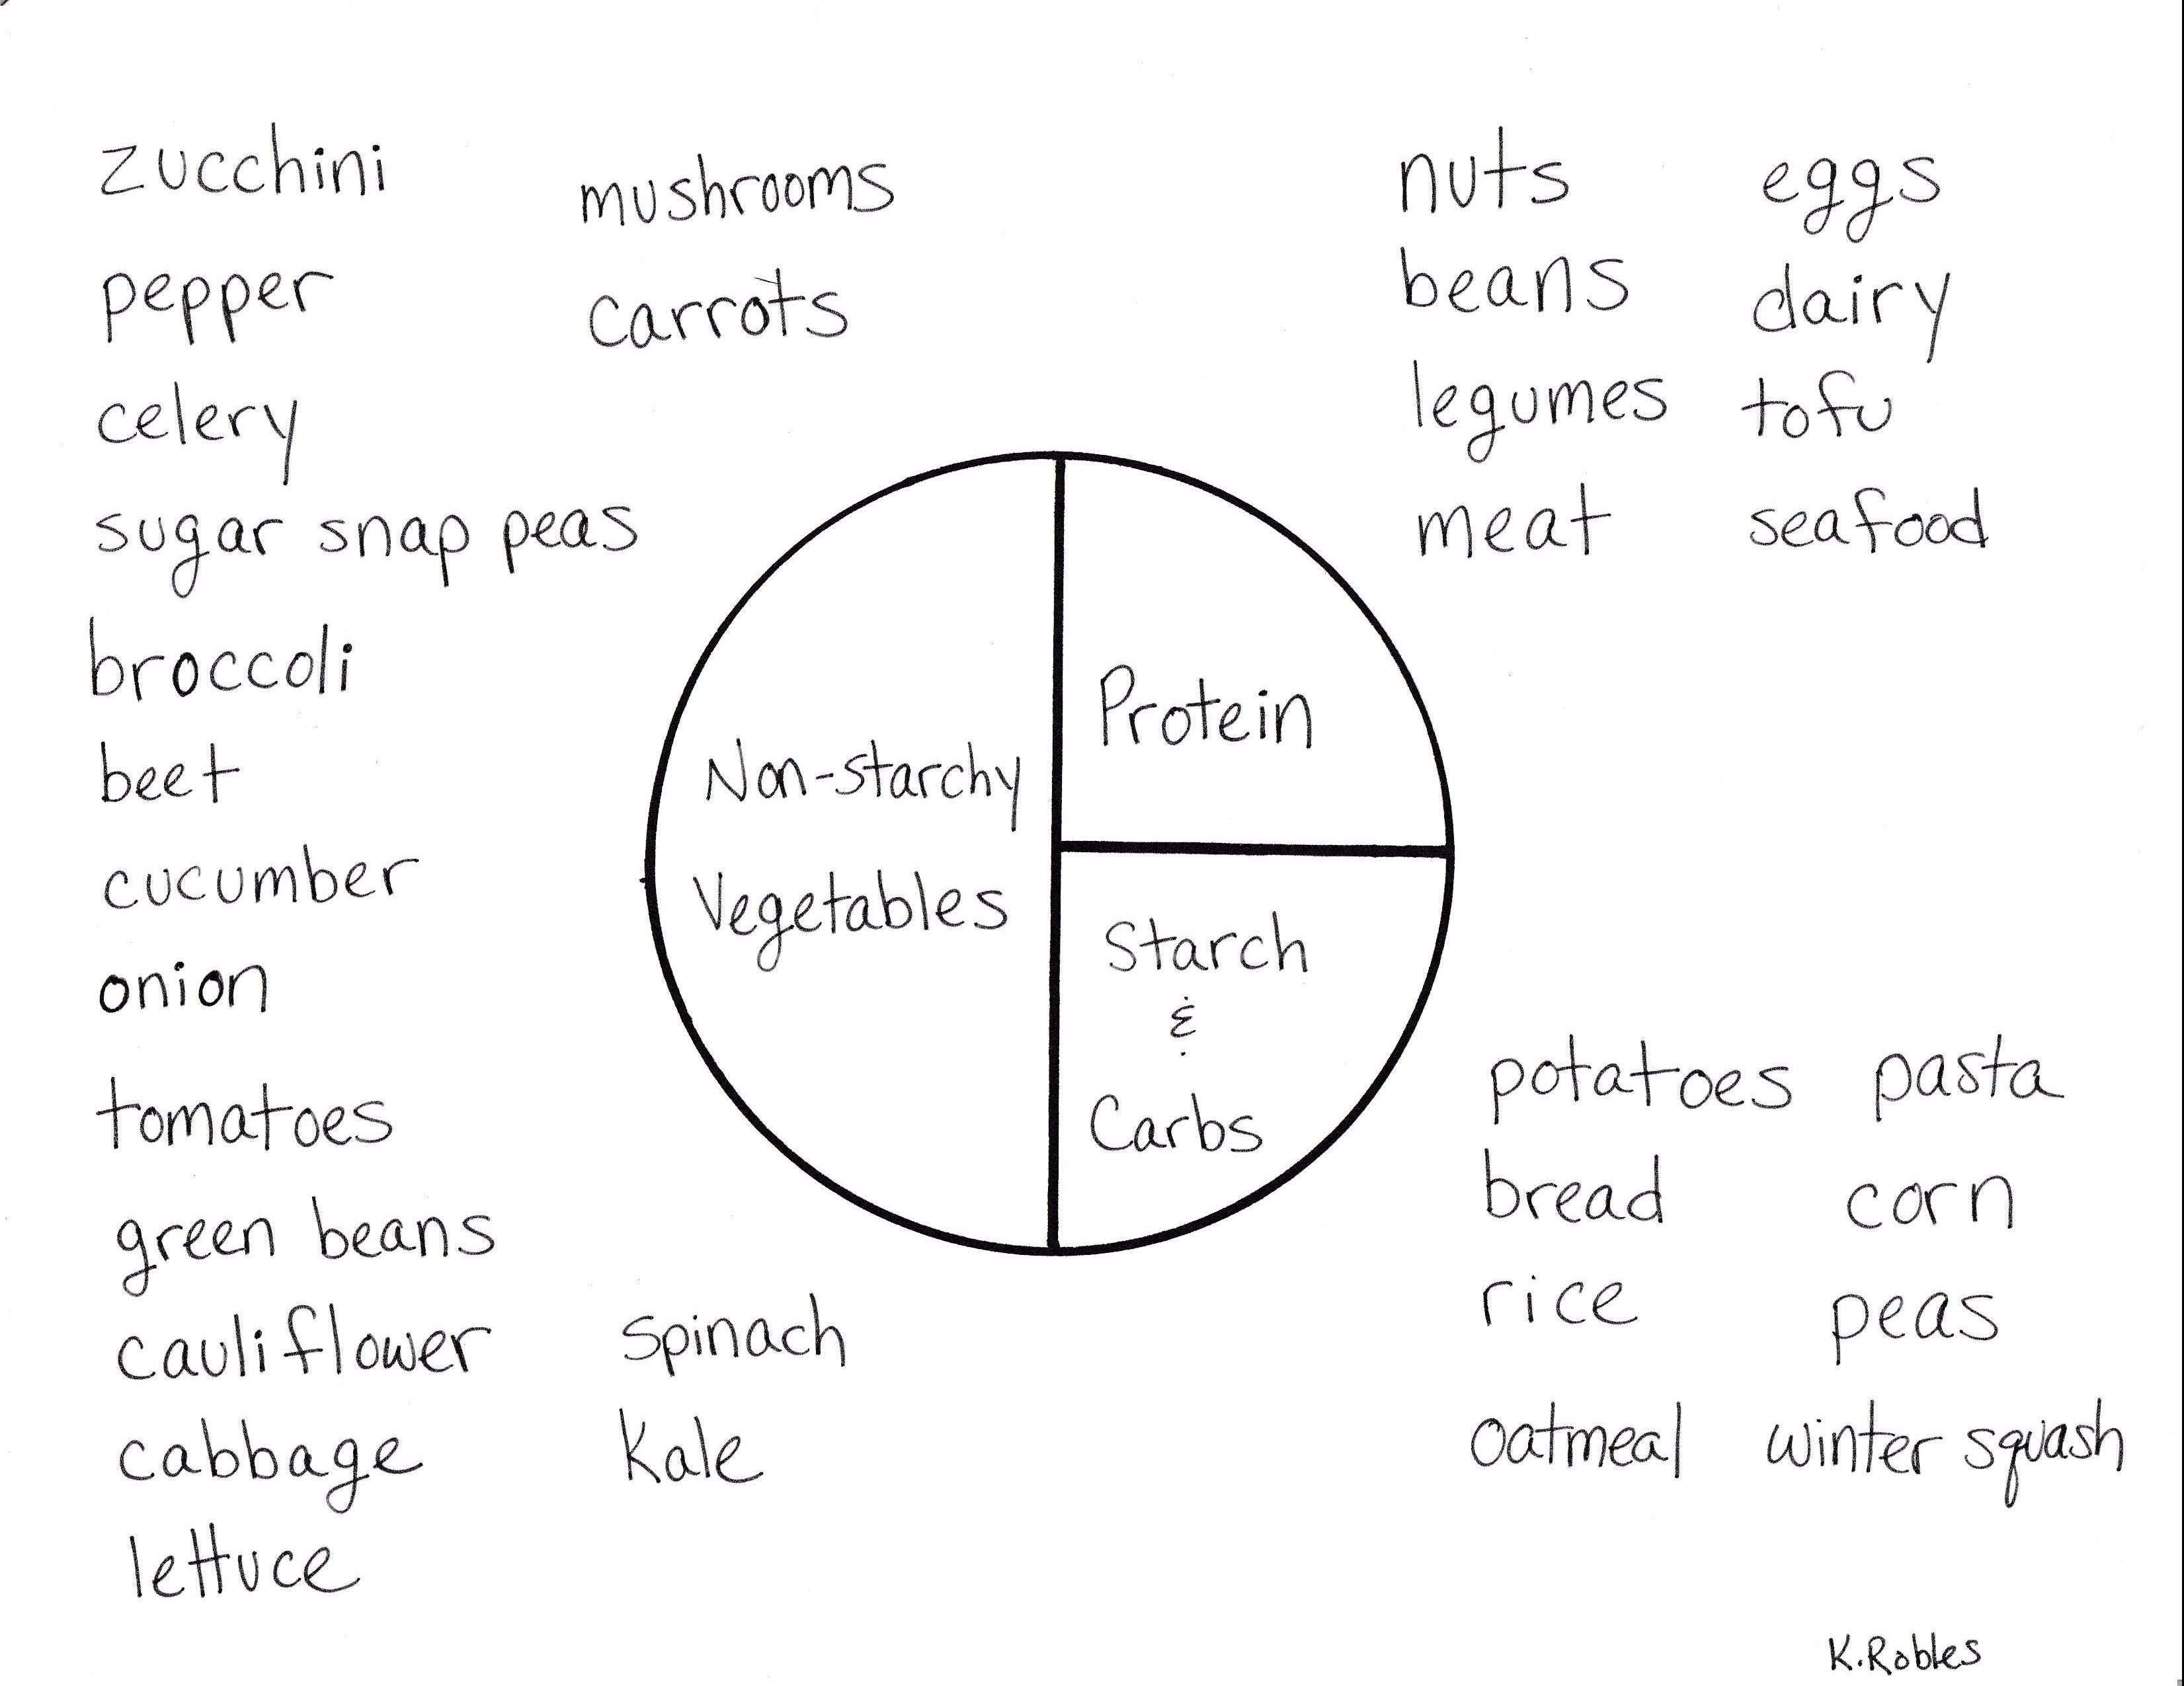 zucchini
pepper
celery
sugar snap peas
broccoli
beet
cucumber
onion
tomatoes
green beans
cauliflower
cabbage
lettuce
mushrooms
carrots
spinach
Kale
Non-starchy
Vegetables
Protein
Starch
&
Carbs
nuts
beans
legumes
meat
eggs
dairy
tofu
seafood
potatoes
bread
rice
oatmeal
pasta
corn
peas
winter squash
K.Robles